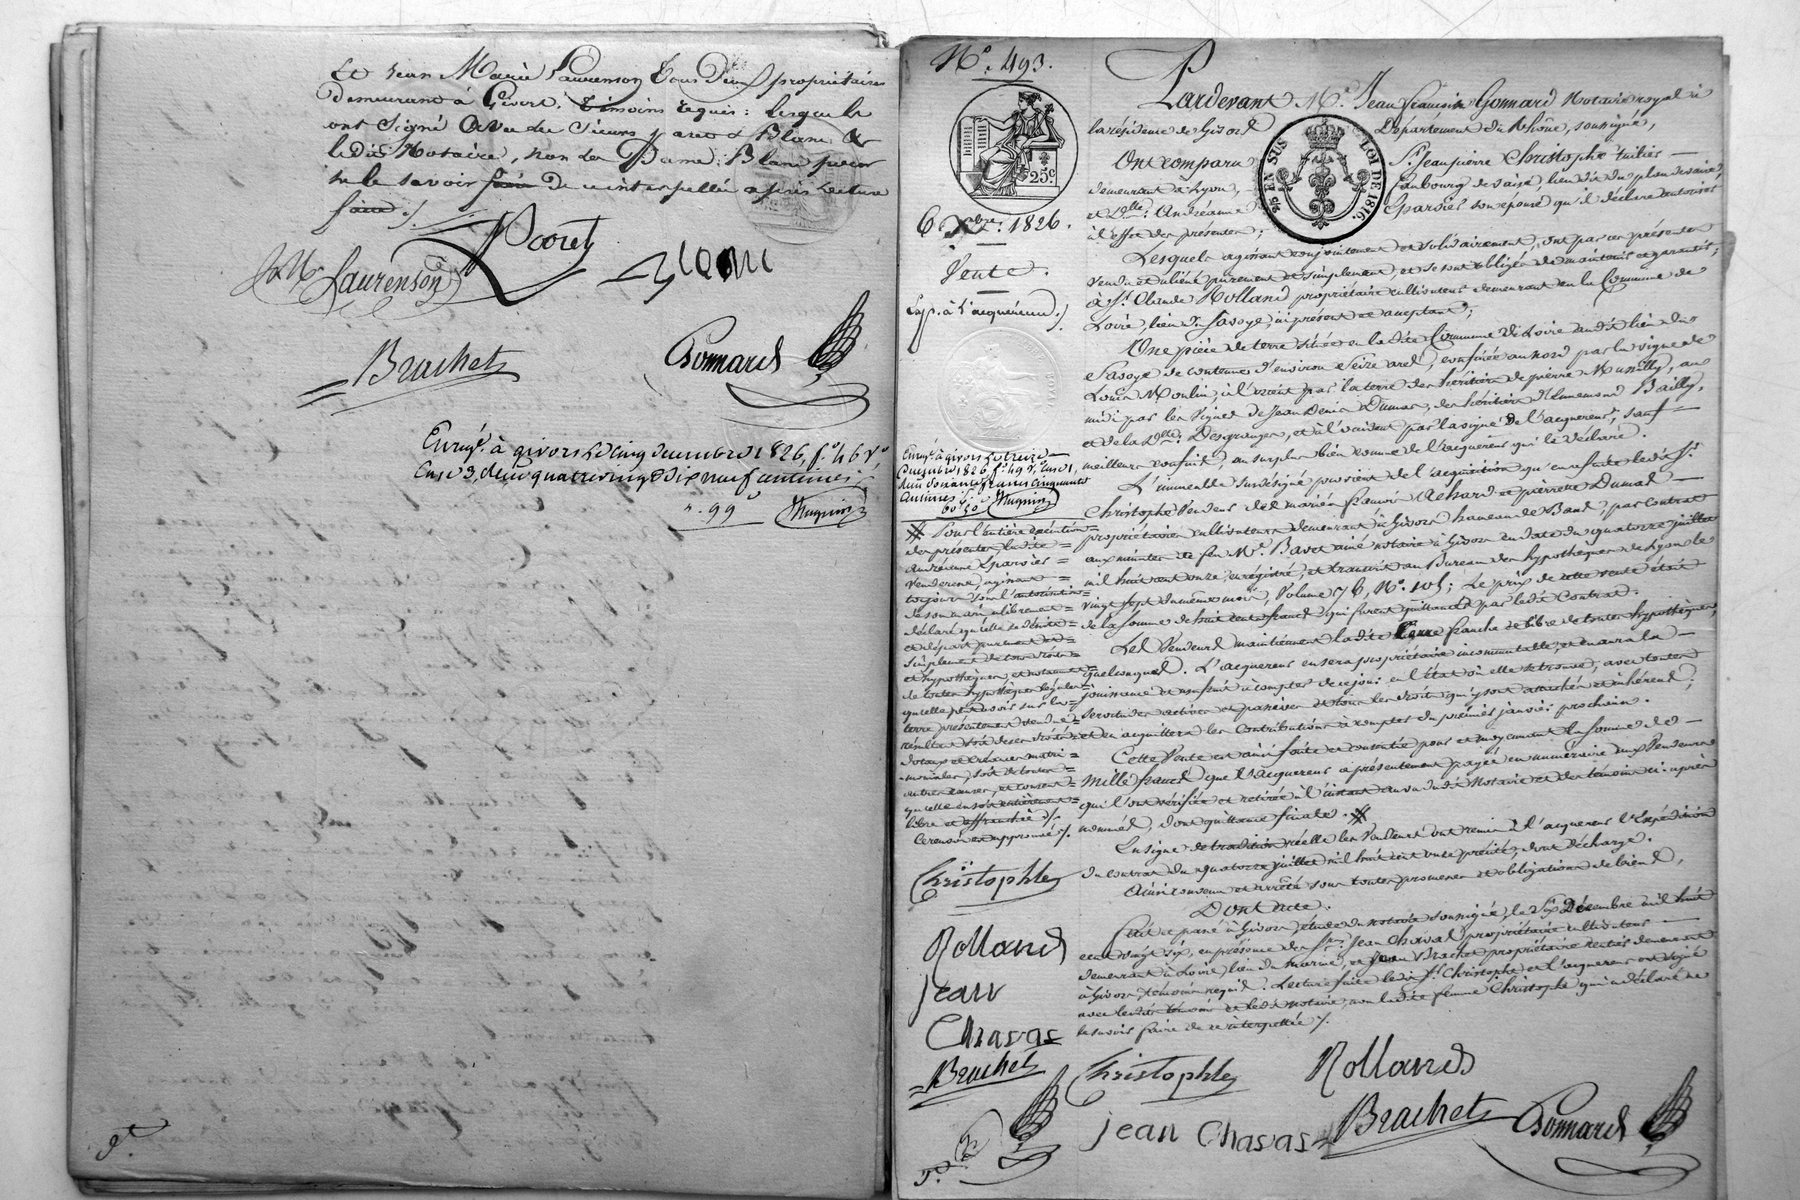 et Jean Marie Laurenson tous deux propriétaires
demeurant à Givors, témoins requis: lesquels
ont signé avec les sieurs et Blanc et
ledit Notaire, non la Dame Blanc pour
ne le savoir faire de ce interpellée après lecture
faite ./.
Pooret
J M Laurenson
Brachet
Gonnard
Enregé. à givors le cinq decembre 1826, fo. 46 vo,
case 3, deux quatrevingt dix neuf centimes
2. 99
No. 493.
25 c.
25 EN SUS LOI DE 1816.
6 Xbre. 1826.
Vente.
Exp. à l'acquéreur ./.
Enregé à givors le treize
Decembre 1826, fo. 49 vo, case 1,
soixante francs cinquante
centimes
60f 50
Pardevant Me. Jean françois Gonnard Notaire royal à
la résidence de Givors Département du Rhône, soussigné,
Ont comparu Sr. Jean pierre Christophe tuilier
demeurant à Lyon, faubourg de vaise, lieu dit du plan de vaise,
et Dlle. Andréanne Eparvier son épouse qu'il déclare autoriser
à l'effet des présentes;
Lesquels agissant conjointement et solidairement, ont par ces présentes
vendu et aliéné purement et simplement, et se sont obligés de maintenir et garantir,
à Sr. Claude Rolland propriétaire cultivateur demeurant en la Commune de
Loire, lieu de Savoye, ici présent et acceptant;
Une pièce de terre située en ladite Commune de Loire audit lieu de
Savoye de contenue d'environ seize ares, confinée au nord par la vigne de
Louis Moulin, à l'orient par la terre des héritiers de pierre Munilly, au
midi par les vignes de Jean Denis Dumas, des héritiers d'Ennemond Bailly,
et de la Dlle. Desgranges, et à l'occident par la vigne de l'acquereur, sauf
meilleurs confins, au surplus bien connue de l'acquéreur qui le déclare.
L'immeuble susdésigné provient de l'acquisition qu'en a faite ledit Sr.
Christophe Vendeur des mariés françois Achard et pierrette Dumas
propriétaires cultivateurs demeurant à Givors hameau de Bans, par contrat
aux minutes de feu Me. Bavet ainé notaire à Givors en date du quatorze juillet
mil huit cent onze, enregistré, et transcrit au Bureau des hypothèques de Lyon le
vingt sept du même mois, Volume 76, No. 105; Le prix de cette vente était
de la somme de huit cents francs qui furent quittancés par ledit Contrat.
Les Vendeurs maintiennent ladite terre franche et libre de toutes hypothèques,
quelconques. L'acquereur en sera propriétaire incommutable, et en aura la
jouissance et usufruit à compter de ce jour en l'état où elle se trouve, avec toutes
servitudes actives et passives et tous les droits qui y sont attachés et inhérens;
et en acquittera les Contributions à compter du premier janvier prochain.
Cette Vente est ainsi faite et consentie pour et moyennant la somme de
Mille francs que l'acquereur a présentement payée en numéraire aux Vendeurs
qui l'ont vérifiée et retirée à l'instant au vu dudit Notaire et des témoins ci-après
nommés, dont quittance finale.
En signe de tradition réelle les Vendeurs ont remis à l'acquereur l'Expédition
du contrat du quatorze juillet mil huit cent onze précité, dont décharge.
Ainsi convenu et arrêté sous toutes promesses et obligations de biens,
Dont acte.
Fait et passé à Givors, étude du notaire soussigné, le Six Décembre mil huit
cent vingt six, en présence des Srs. Jean Chavas propriétaire cultivateur
demeurant à Loire, lieu du , et Jean Brachet propriétaire rentier demeurant
à Givors, témoins requis. Lecture faite ledit Sr. Christophe et l'acquereur ont signé
avec lesdits témoins et ledit notaire, non ladite femme Christophe qui a déclaré ne
le savoir faire de ce interpellée ./.
Pour l'entière exécution
des présentes ladite
Andréanne Eparvier
Venderesse, agissant
toujours sous l'autorisation
de son mari a librement
déclaré qu'elle se désiste
et départ purement et
simplement de tous droits
et hypothèques, et notamment
de toutes hypothèques légales
qu'elle peut avoir sur la
terre présentement vendue
résultant soit de ses droits
dotaux et créances matri-
moniales, soit de toutes
autres causes, et consent
qu'elle en soit entièrement
libre et affranchie ./.
Ce renvoi est approuvé ./.
Christophle
Rolland
Jean
Chavas
Brachet
Christophle
Rolland
jean Chavas
Brachet
Gonnard